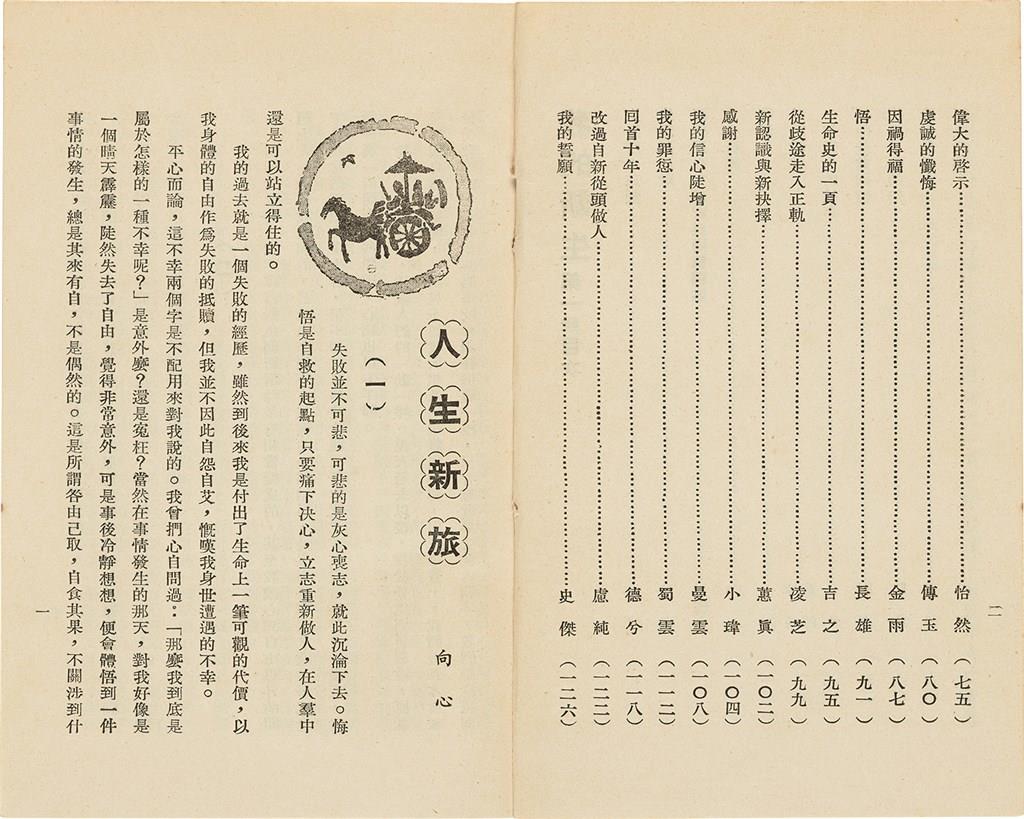 二
偉大的啓示……怡然（七五）
虔誠的懺悔……傳玉（八〇）
因禍得福……金雨（八七）
悟……長雄（九一）
生命史的一頁……吉之（九五）
從歧途走入正軌……凌芝（九九）
新認識與新抉擇……蕙眞（一〇二）
感謝……小瑋（一〇四）
我的信心陡增……曼雲（一〇八）
我的罪愆……蜀雲（一一二）
囘首十年……德兮（一一八）
改過自新從頭做人……慮純（一二二）
我的誓願……史傑（一二六）
人生新旅
向心
（一）
失敗並不可悲，可悲的是灰心喪志，就此沉淪下去。悔
悟是自救的起點，只要痛下決心，立志重新做人，在人羣中
還是可以站立得住的。
我的過去就是一個失敗的經歷，雖然到後來我是付出了生命上一筆可觀的代價，以
我身體的自由作爲失敗的抵贖，但我並不因此自怨自艾，慨嘆我身世遭遇的不幸。
平心而論，這不幸兩個字是不配用來對我說的。我曾捫心自問過：「那麼我到底是
屬於怎樣的一種不幸呢？」是意外麼？還是寃枉？當然在事情發生的那天，對我好像是
一個晴天霹靂，陡然失去了自由，覺得非常意外，可是事後冷靜想想，便會體悟到一件
事情的發生，總是其來有自，不是偶然的。這是所謂咎由己取，自食其果，不關涉到什
一